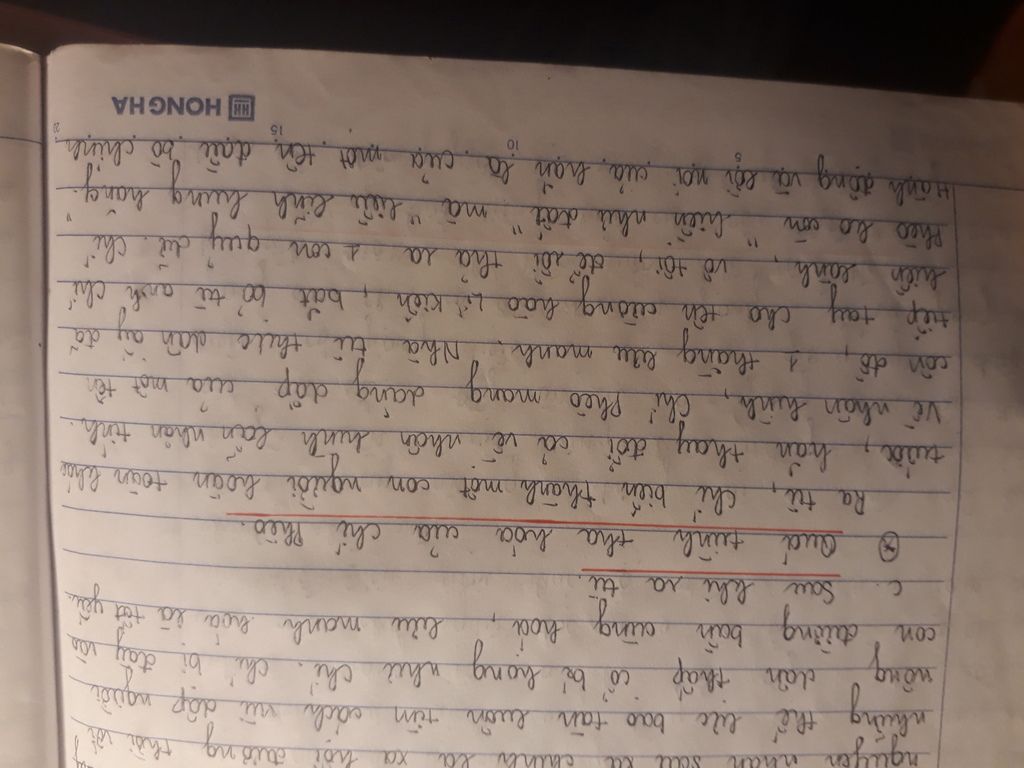 nguyên nhân sâu xa chính là xã hội đương thời với
những thế lực bạo tàn luôn tìm cách vùi dập người
nông dân thấp cổ bé họng như Chí. Chí bị đẩy vào
con đường bần cùng hoá, lưu manh hoá là tất yếu.
c. Sau khi ra tù.
* Quá trình tha hoá của Chí Phèo.
Ra tù, Chí biến thành một con người hoàn toàn khác
trước, hắn thay đổi cả về nhân hình lẫn nhân tính.
Về nhân hình, Chí Phèo mang dáng dấp của một tên
côn đồ, 1 thằng lưu manh. Nhà tù thực dân ấy đã
tiếp tay cho tên cường hào Lí Kiến, bắt bỏ tù anh Chí
hiền lành, vô tội, để rồi thả ra 1 con quỷ dữ. Chí
Phèo ko còn "hiền như đất" mà "liều lĩnh hung hăng".
Hành động và lời nói của hắn là của một tên đầu bò chính
5 10 15 20
HONG HA